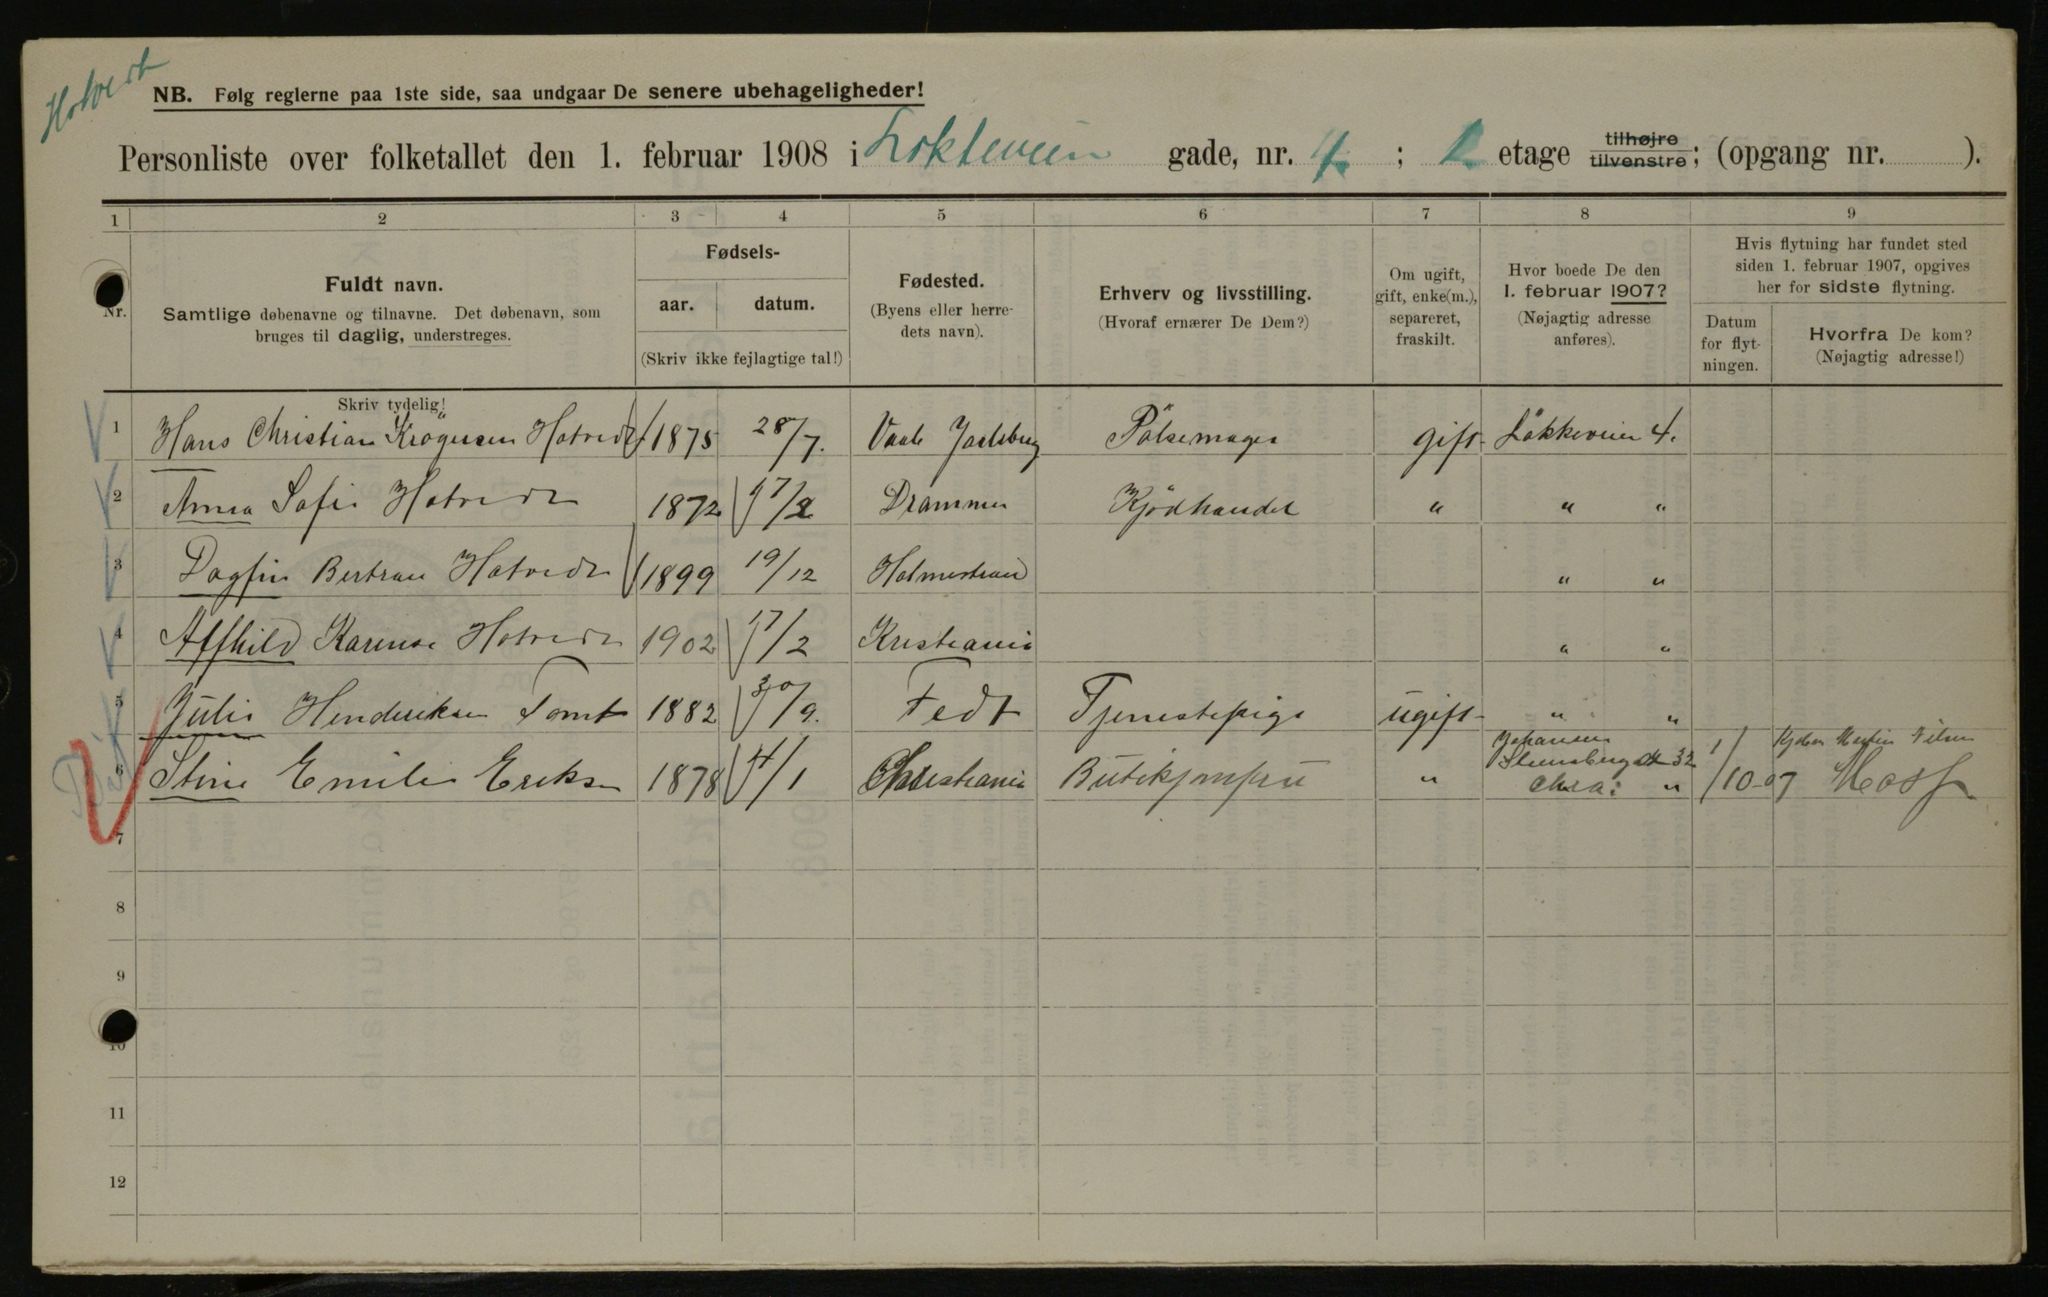 Hotvedt
NB. Følg reglerne paa 1ste side, saa undgaar De senere ubehageligheder!
Personliste over folketallet den 1. februar 1908 i Løkkeveien gade, nr. 4 ; 2 etage tilhøjre tilvenstre; (opgang nr. ).
1 2 3 4 5 6 7 8 9
Nr.
Fuldt navn.
Samtlige døbenavne og tilnavne. Det døbenavn, som
bruges til daglig, understreges.
Skriv tydelig!
Fødsels-
aar. datum.
(Skriv ikke fejlagtige tal!)
Fødested.
(Byens eller herre-
dets navn).
Erhverv og livsstilling.
(Hvoraf ernærer De Dem?)
Om ugift,
gift, enke(m.),
separeret,
fraskilt.
Hvor boede De den
1. februar 1907?
(Nøjagtig adresse
anføres).
Hvis flytning har fundet sted
siden 1. februar 1907, opgives
her for sidste flytning.
Datum
for flyt-
ningen.
Hvorfra De kom?
(Nøjagtig adresse!)
1 Hans Christian Krögersen Hotvedt 1875 28/7. Vaale Jarlsberg Pölsemager gift Lökkeveien 4.
2 Anna Sofie Hotvedt 1872 17/2 Drammen Kjödhandel " " "
3 Dagfin Bertran Hotvedt 1899 19/12 Holmestrand " "
4 Alfhild Karense Hotvedt 1902 17/2 Kristiania " "
5 Julie Hendriksen Tomt 1882 30/9. Fedt Tjenestepige ugift " "
6 Stine Emilie Eriksen 1878 14/1 Christiania Butikjomfru " Johansen 32 Chra: " 1/10-07 Martin Nilsen Moss
7
8
9
10
11
12